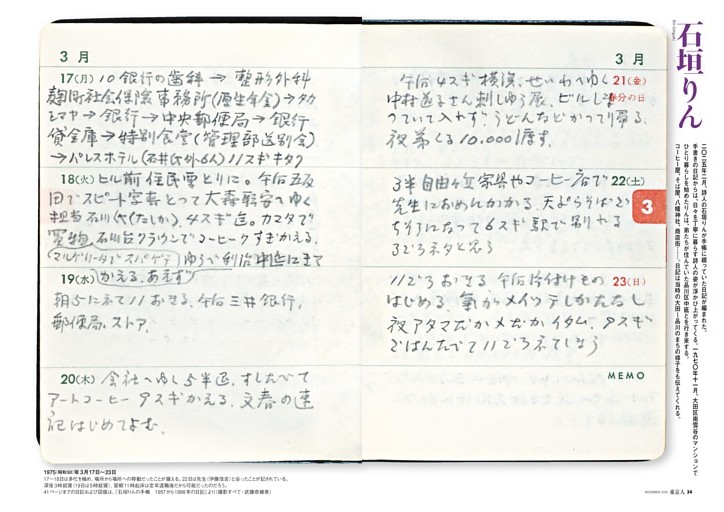 石垣りん
二〇二五年二月、詩人の石垣りんが手帳に綴っていた日記が編まれた。
手書きの日記からは、日々を丁寧に暮らす詩人の姿が浮かび上がってくる。一九七〇年十一月、大田区南雪谷のマンションで
ひとり暮らしを始めたりんは、弟たちが住んでいた品川区中延とを行き来する。
コーヒー屋、そば屋、八幡神社、商店街……。日記は当時の大田〜品川のまちの様子をも伝えてくれる。
3 月
17(月) 10 銀行の歯科 → 整形外科
麹町社会保険事務所(厚生年金)→タカ
シマヤ → 銀行 → 中央郵便局 → 銀行
貸金庫 → 特別食堂(管理部送別会)
→ パレスホテル(石井氏外6人) 11スギキタク
18(火) ヒル前 住民票とりに。午后五反
田でスピード写真とって大森職安へゆく
担当 石川 4スギ迄。カマタで
買物、石川台クラウンでコーヒー クすぎかえる。
19(水)
かえる、あえず
朝5にネて11おきる。午后三井銀行、
郵便局、ストア、
20(木) 会社へゆく5半迄、すしたべて
アートコーヒー クスギかえる、文春の速
記はじめてよむ、
3 月
午后4スギ横浜、せいわへゆく 21(金)
春分の日
中村 さん刺しゅう展、ビルしま
っていて入れず、うどんなどかって帰る、
夜 弟くる 10.000渡す。
3半自由ヶ丘家具やコーヒー店で 22(土)
先生におめんかかる、天ぷらそばごち
そうになって6スギ駅で別れる
3
11どろおきる 午后片付けもの 23(日)
はじめる、氣がメイッテしかたなし
夜アタマだかメだかイタム、クスギ
ごはんたべて11どろネてしまう
MEMO
1975(昭和50)年3月17日〜23日
17〜18日は多忙を極め、場所から場所への移動だったことが窺える。22日は先生(伊藤信吉)と会ったことが記されている。
深夜3時就寝(19日は5時就寝)、翌朝11時起床は定年退職後だから可能だったのだろう。
41ページまでの日記および図版は、『石垣りんの手帳 1957から1998年の日記』より(撮影すべて・武藤奈緒美)
NOVEMBER 2025 東京人 34